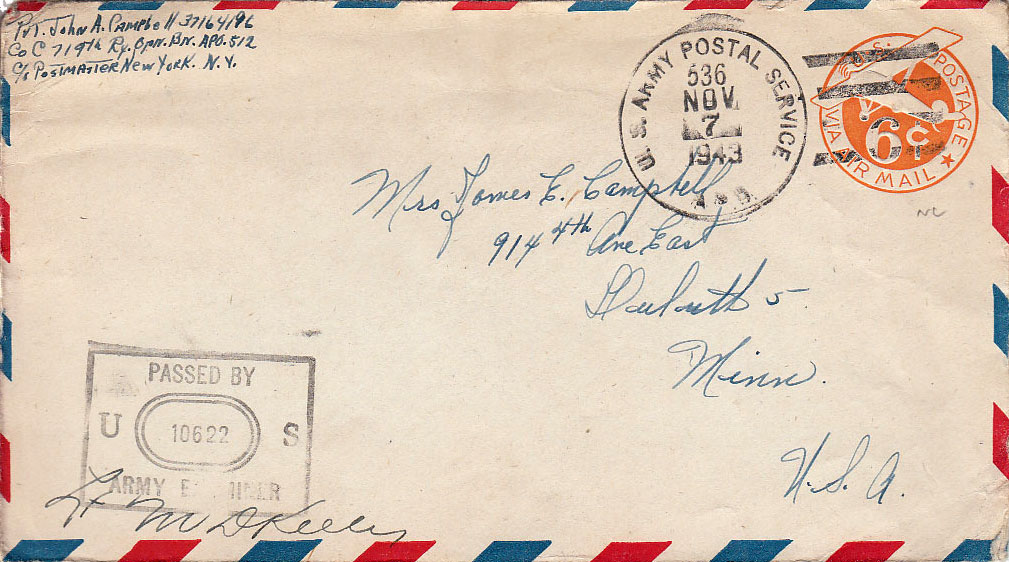 Pvt. John A. Campbell 37164196
Co C 719th Ry. Opn. Bn. APO. 512
c/o Postmaster New York. N.Y.
U.S. ARMY POSTAL SERVICE
536
NOV
7
1943
U.S. POSTAGE
6¢
VIA AIR MAIL
NC
Mrs James E. Campbell
914 4th Ave East
Duluth 5.
Minn.
U.S.A.
PASSED BY
U 10622 S
ARMY E INER
Lt M D Kelley